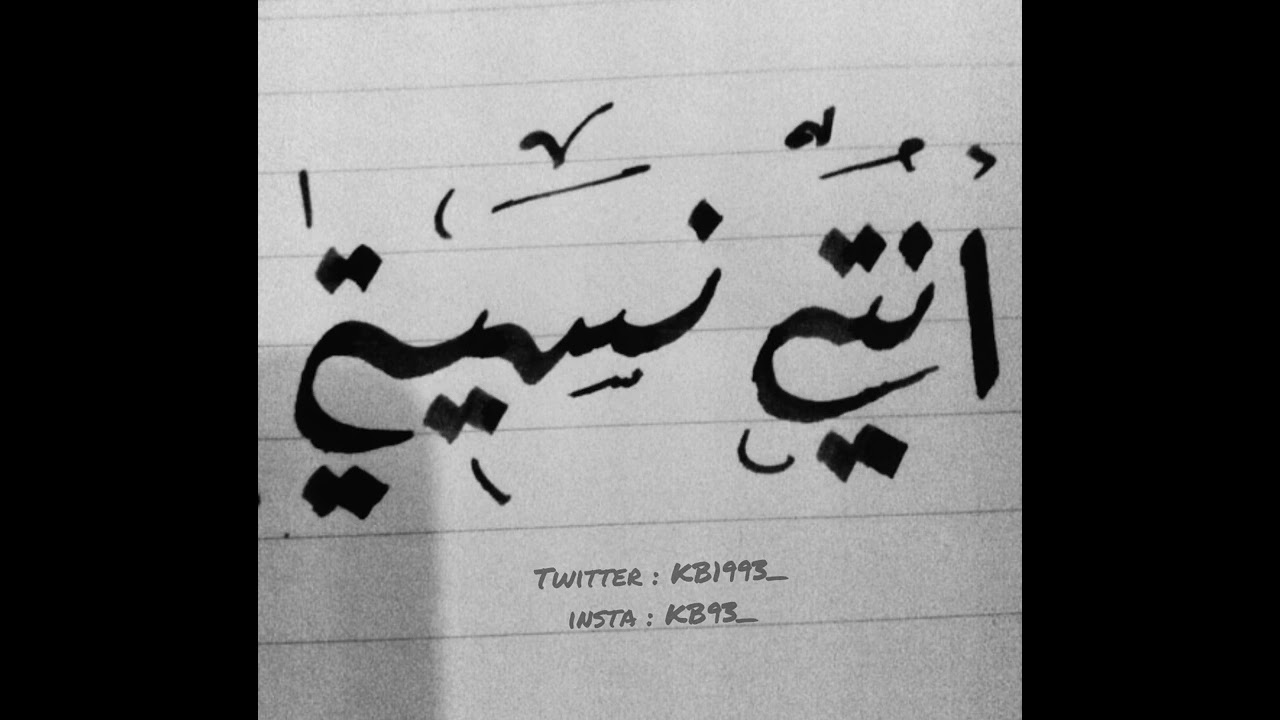 انتي نسيتي
Twitter : KB1993_
insta : KB93_